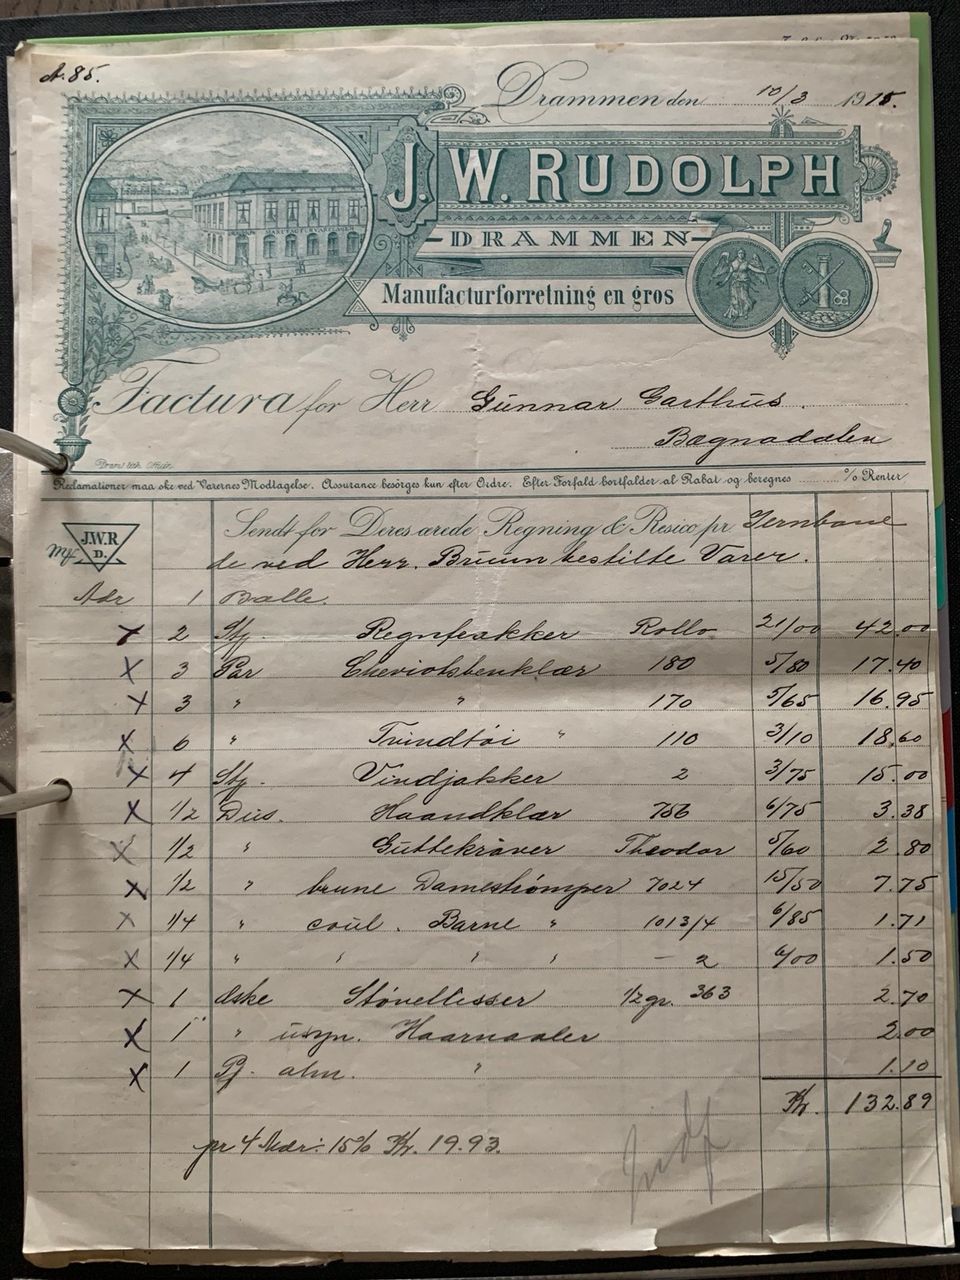 A. 85.
Drammen den 10/3 1915.
J. W. RUDOLPH
DRAMMEN
Manufacturforretning en gros
Factura for Herr Gunnar Garthus.
Bægnadalen
Reclamationer maa ske ved Varernes Modtagelse. Assurance besörges kun efter Ordre. Efter Forfald bortfalder al Rabat og beregnes % Renter
J.W.R
D.
Sendt for Deres ærede Regning & Resico pr Jernbane
de ved Herr. Bruun bestilte Varer.
Adr 1 Balle.
x 2 Stk. Regnfrakker Rollo 21/00 42.00
x 3 Par Cheviotsbenklær 180 5/80 17.40
x 3 " " 170 5/65 16.95
x 6 " Tvindtøi " 110 3/10 18.60
x 4 Stk. Vindjakker 2 3/75 15.00
x 1/2 Dus. Haandklær 756 6/75 3.38
x 1/2 " Guttekraver Theodor 5/60 2.80
x 1/2 " brune Damestrømper 7024 15/50 7.75
x 1/4 " coul. Barne " 1013/4 6/85 1.71
x 1/4 " " " " - 2 6/00 1.50
x 1 æske Støvellisser 1/2 gr. 363 2.70
x 1 " usyn. Haarnaaler 2.00
x 1 Pk. alm. " 1.10
Kr. 132.89
pr 4 Mdr: 15% Kr. 19.93.